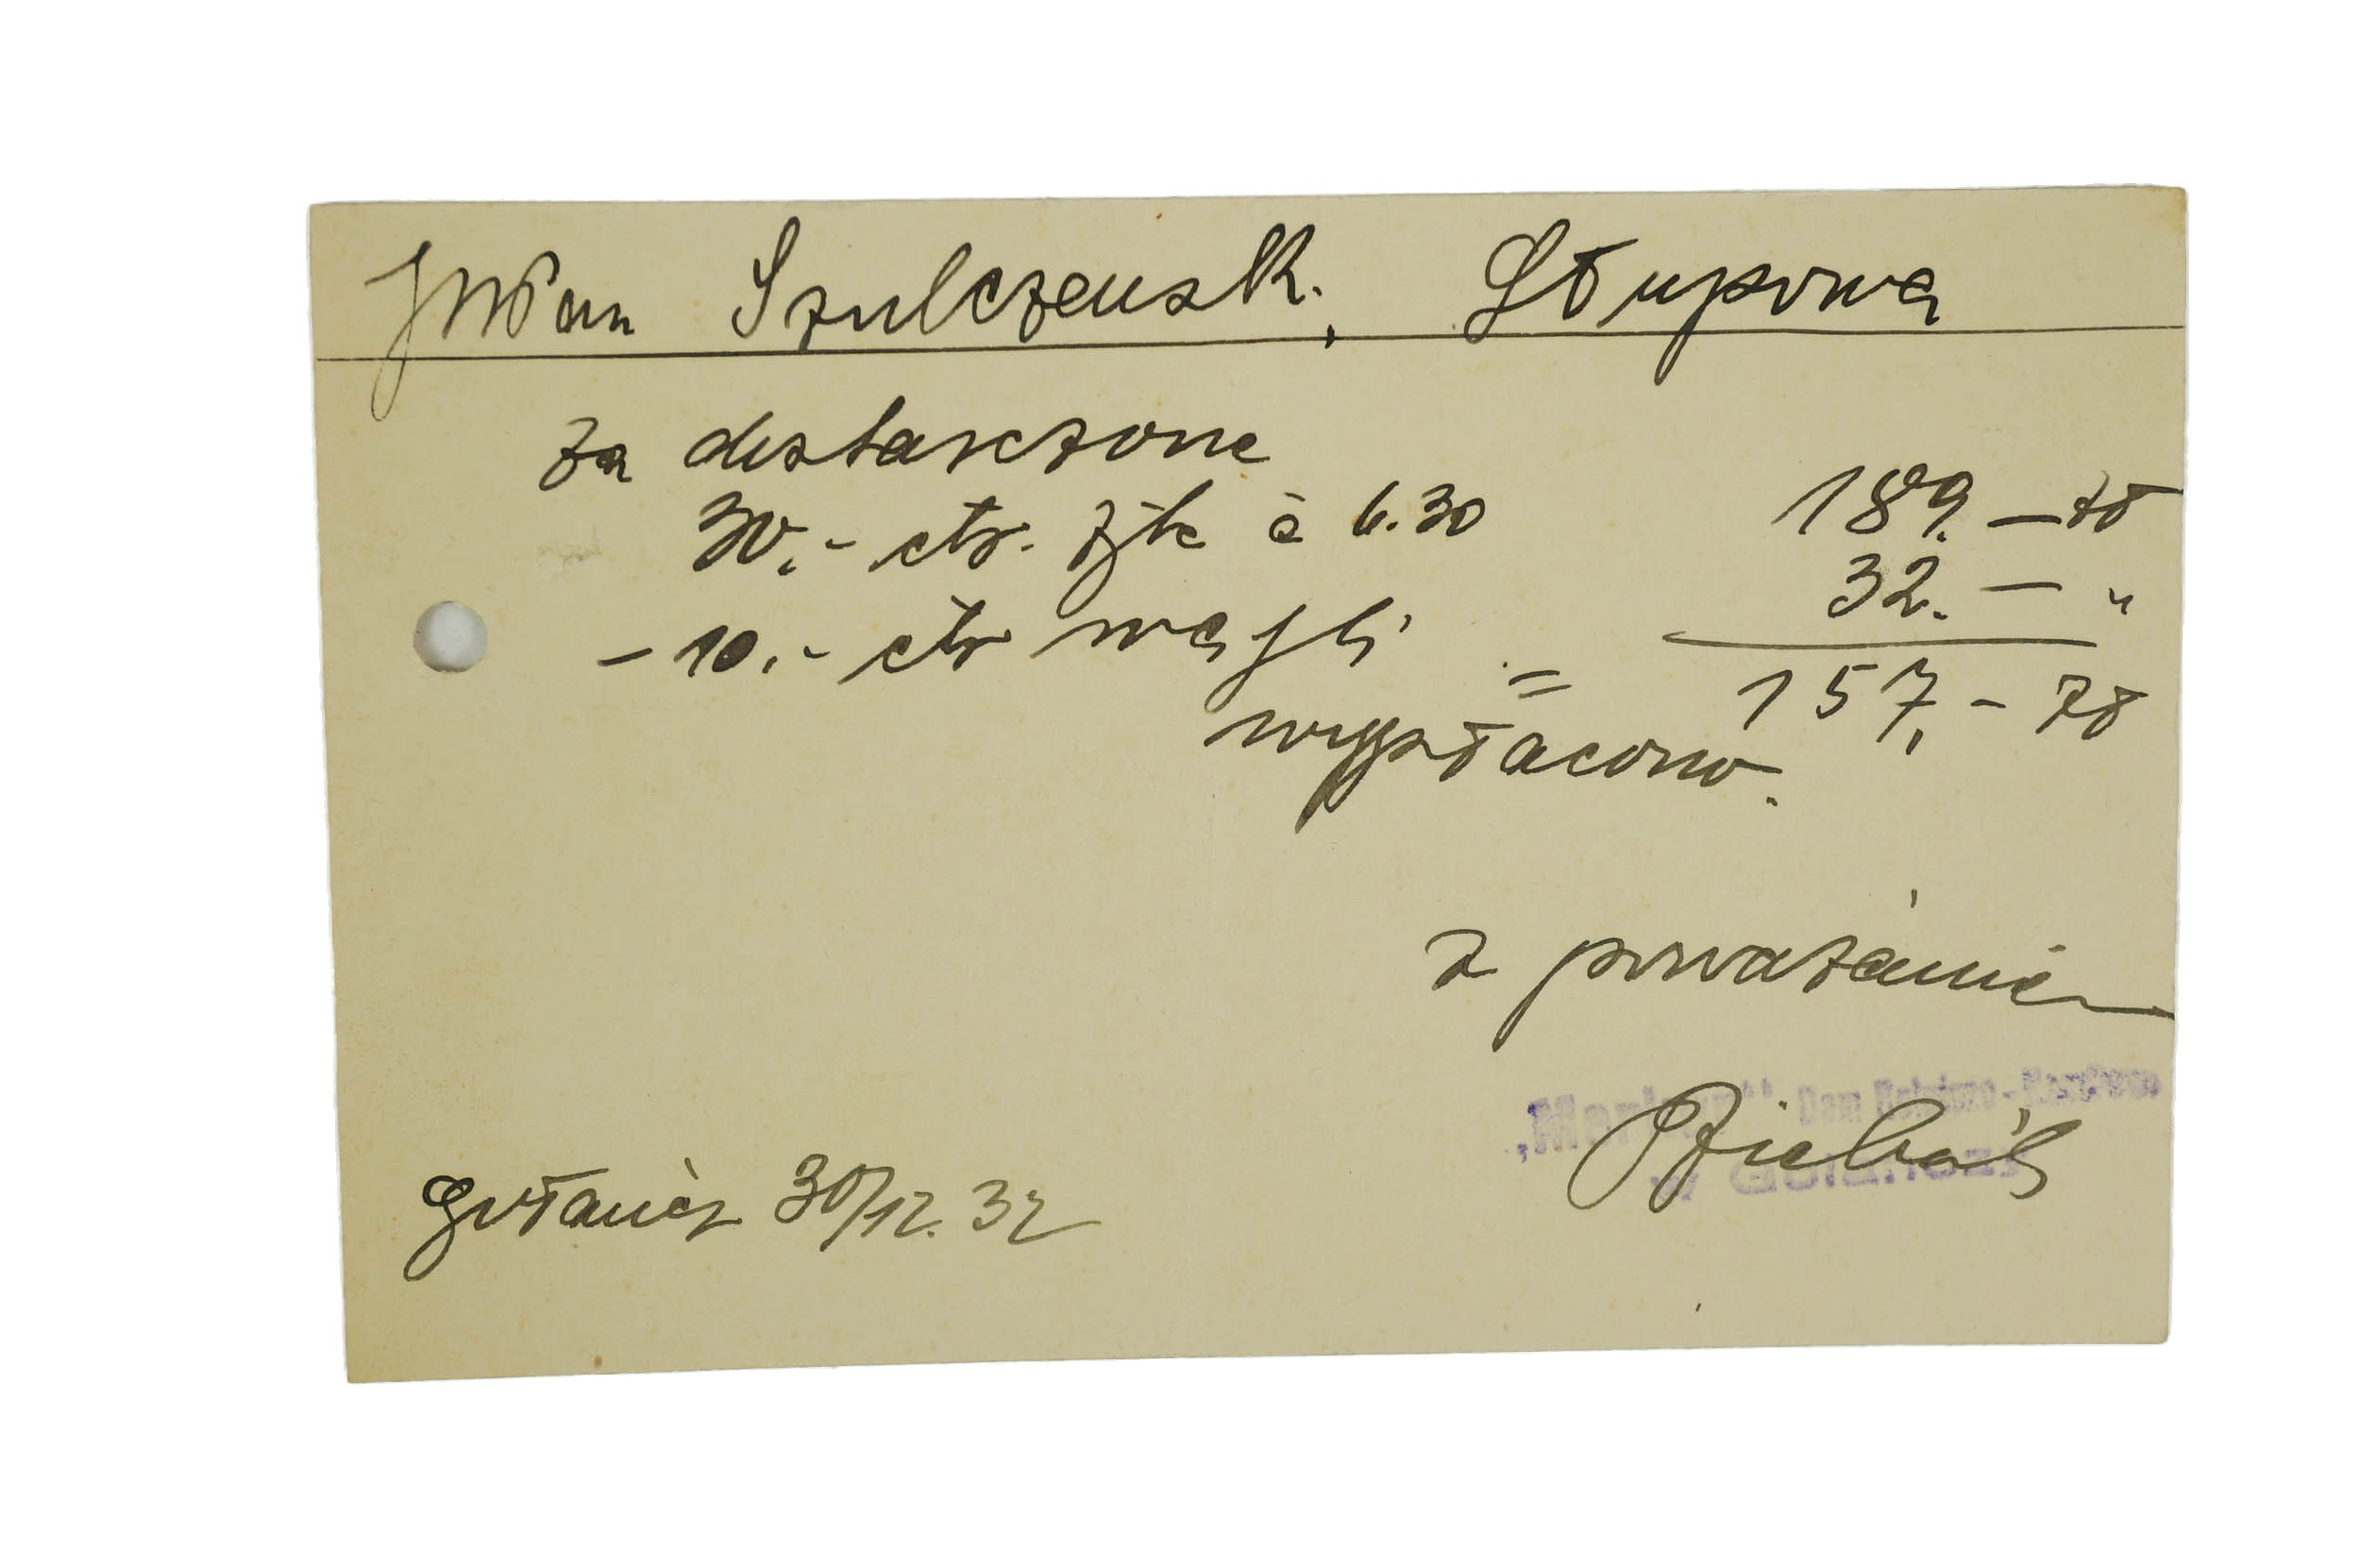 JWPan Szulczewski, Słupowa
za dostarczone
30.- ctr. żyta à 6.30 189.— zł
- 10.- ctr węgli 32.— "
= 157,- zł
wypłacono.
z poważaniem
„Merkur" Dom Rolniczo-Handlow.
w Gołańczy
Gołańcz 30/12. 32